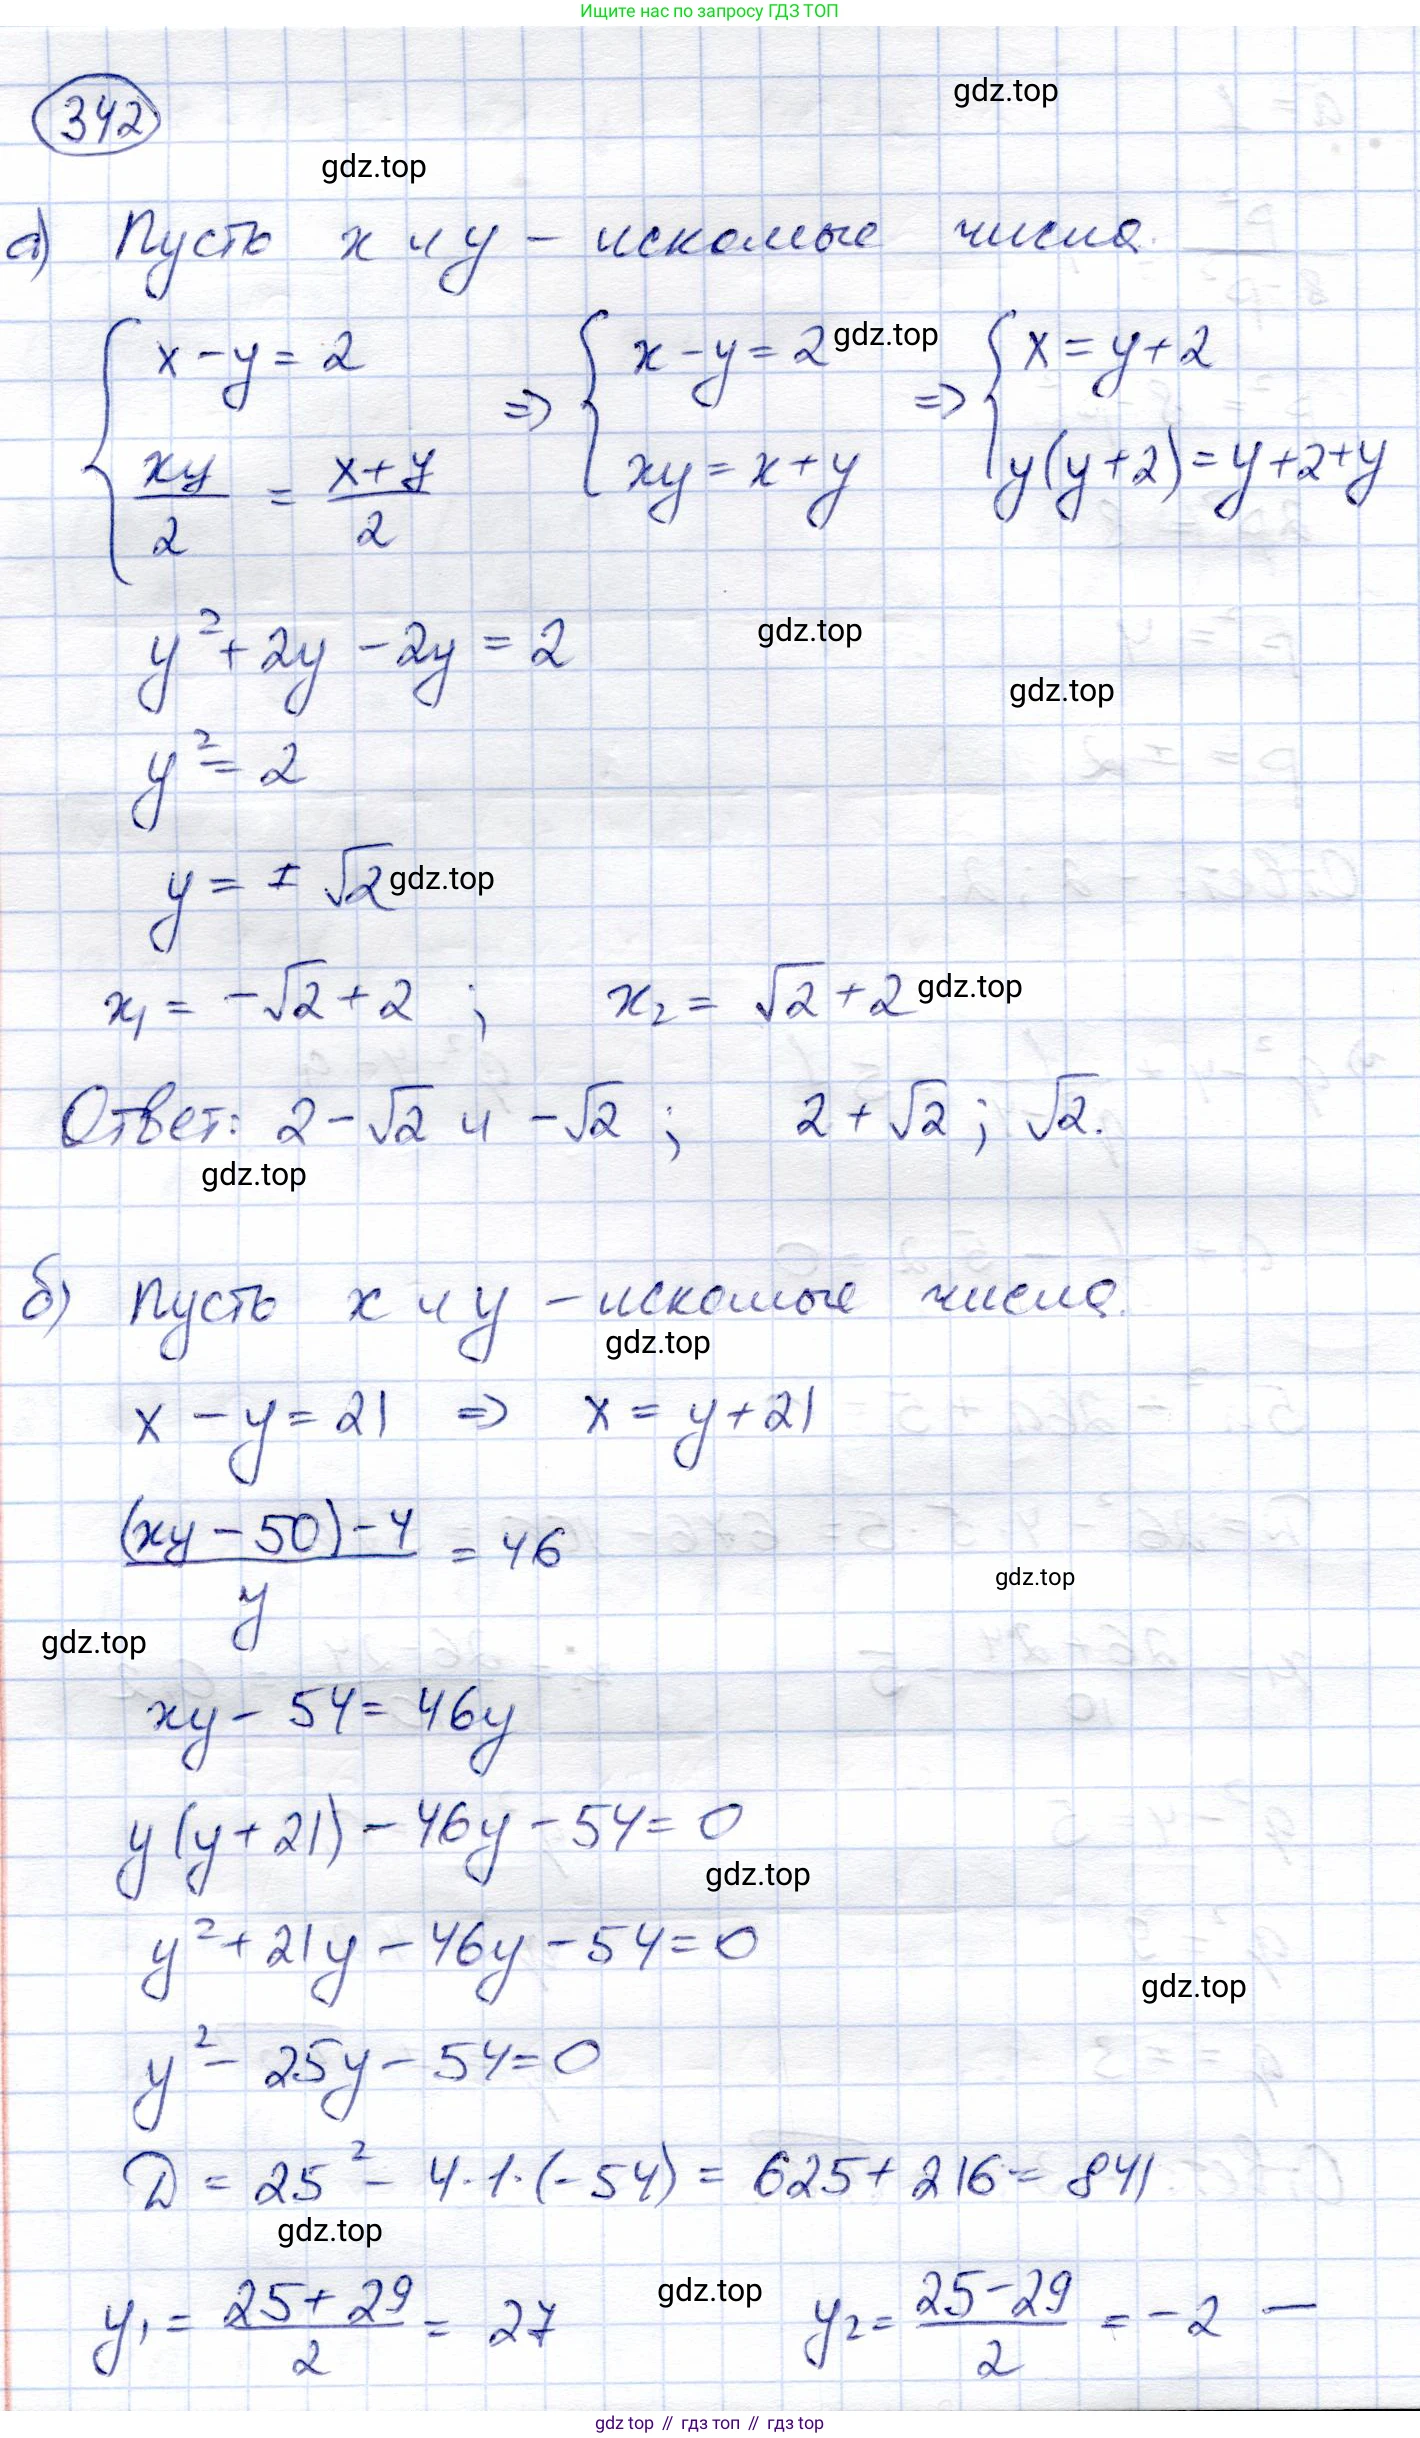 Ищите нас по запросу ГДЗ ТОП
342
gdz.top
gdz.top
а) Пусть x и y – искомые числа.
{ x – y = 2 ⇒ { x – y = 2 gdz.top ⇒ { x = y + 2
xy/2 = x+y/2 xy = x + y y(y+2) = y+2+y
y² + 2y – 2y = 2
gdz.top
gdz.top
y² = 2
y = ± √2 gdz.top
x₁ = –√2 + 2 ; x₂ = √2 + 2 gdz.top
Ответ: 2 – √2 и –√2 ; 2 + √2 ; √2.
gdz.top
б) Пусть x и y – искомые числа.
gdz.top
x – y = 21 ⇒ x = y + 21
(xy – 50) – 4 / y = 46
gdz.top
gdz.top
xy – 54 = 46y
y(y + 21) – 46y – 54 = 0
gdz.top
y² + 21y – 46y – 54 = 0
gdz.top
y² – 25y – 54 = 0
D = 25² – 4·1·(–54) = 625 + 216 = 841
gdz.top
y₁ = 25 + 29 / 2 = 27 gdz.top y₂ = 25 – 29 / 2 = –2 —
gdz top // гдз топ // гдз top